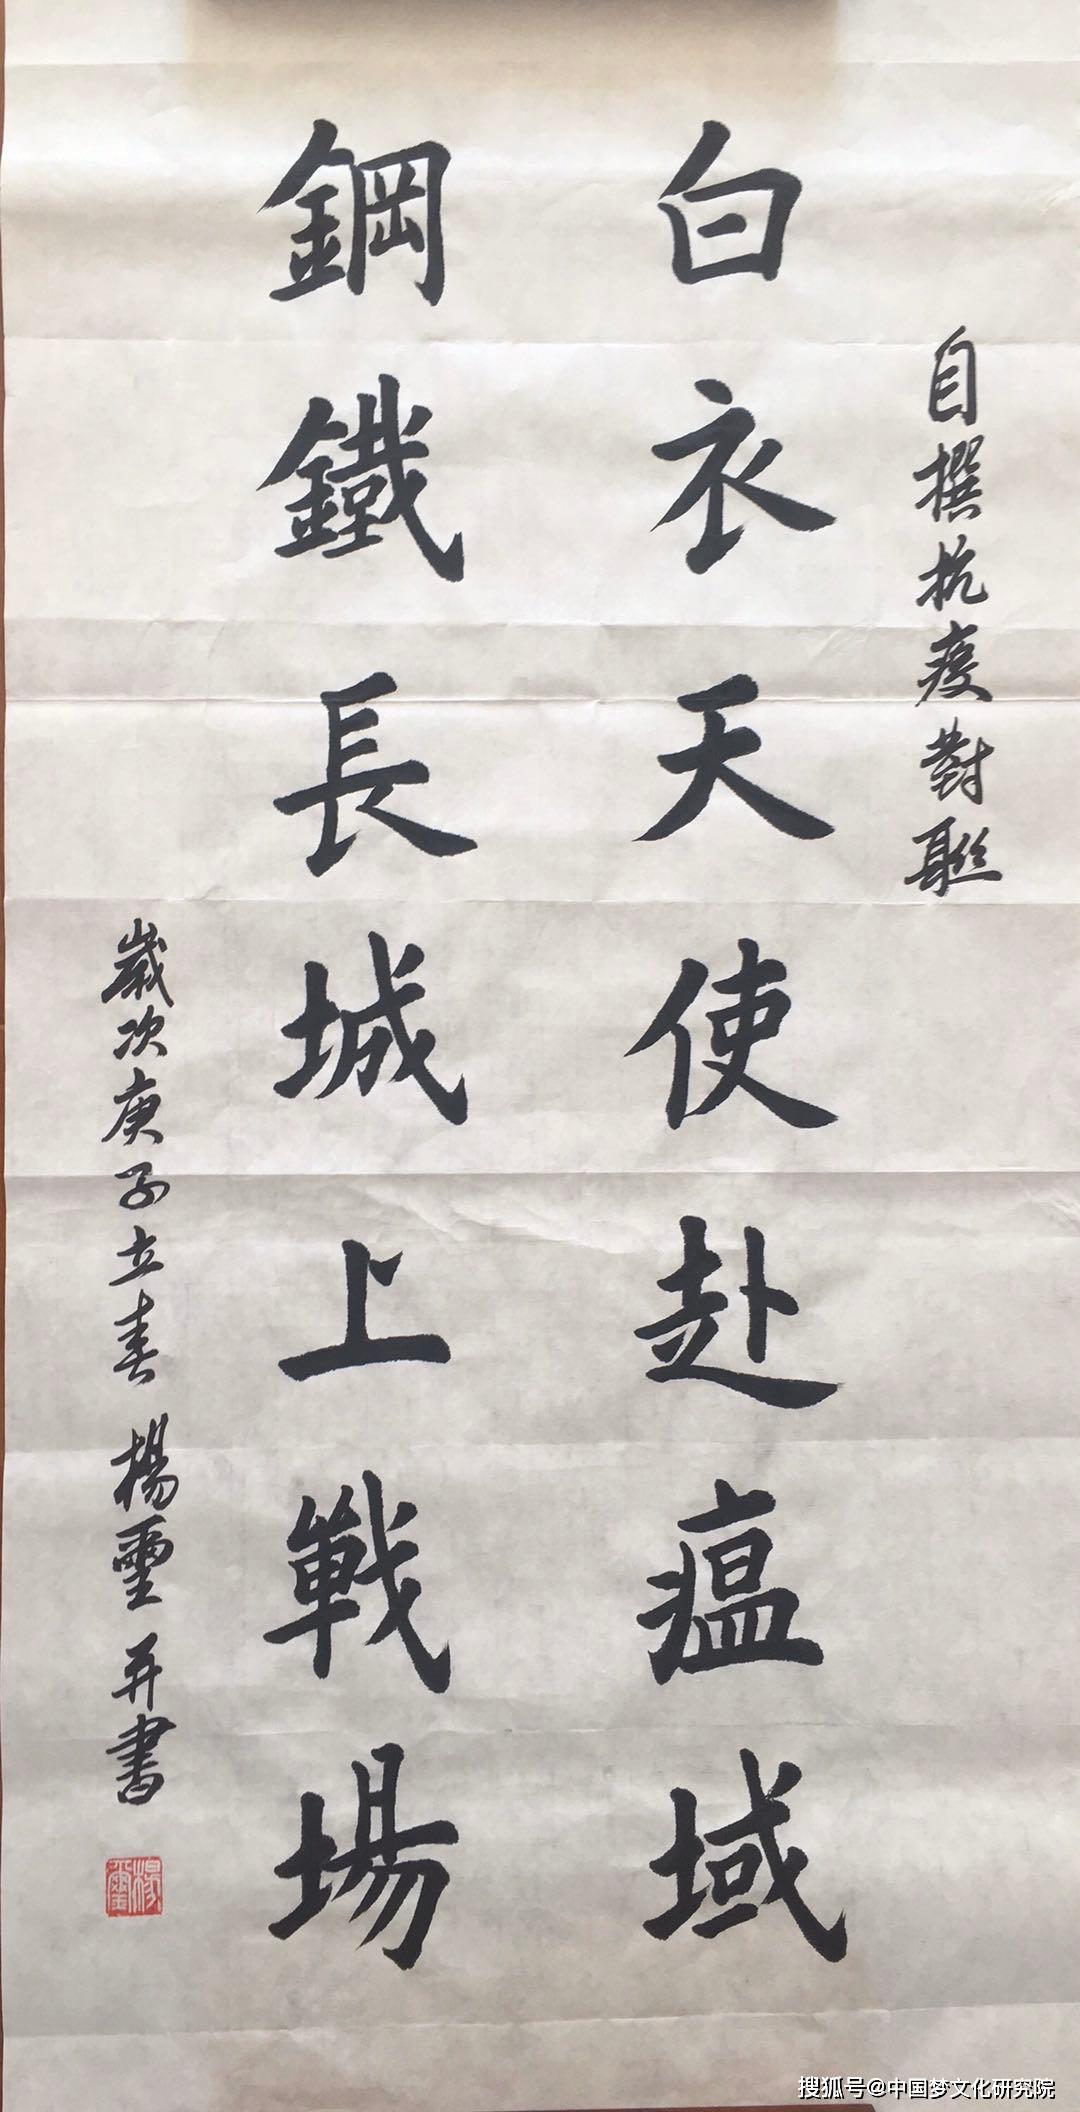 自撰抗疫對聯
白衣天使赴瘟域
鋼鐵長城上戰場
歲次庚子立春 楊璽并書
楊璽
搜狐号@中国梦文化研究院